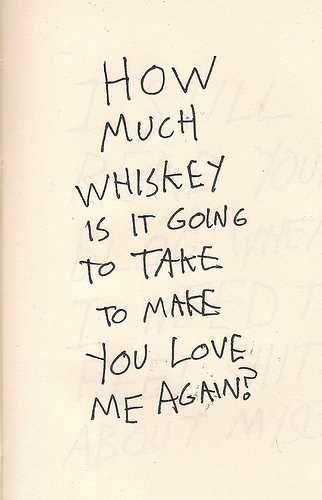 HOW
MUCH
WHISKEY
IS IT GOING
TO TAKE
TO MAKE
YOU LOVE
ME AGAIN?